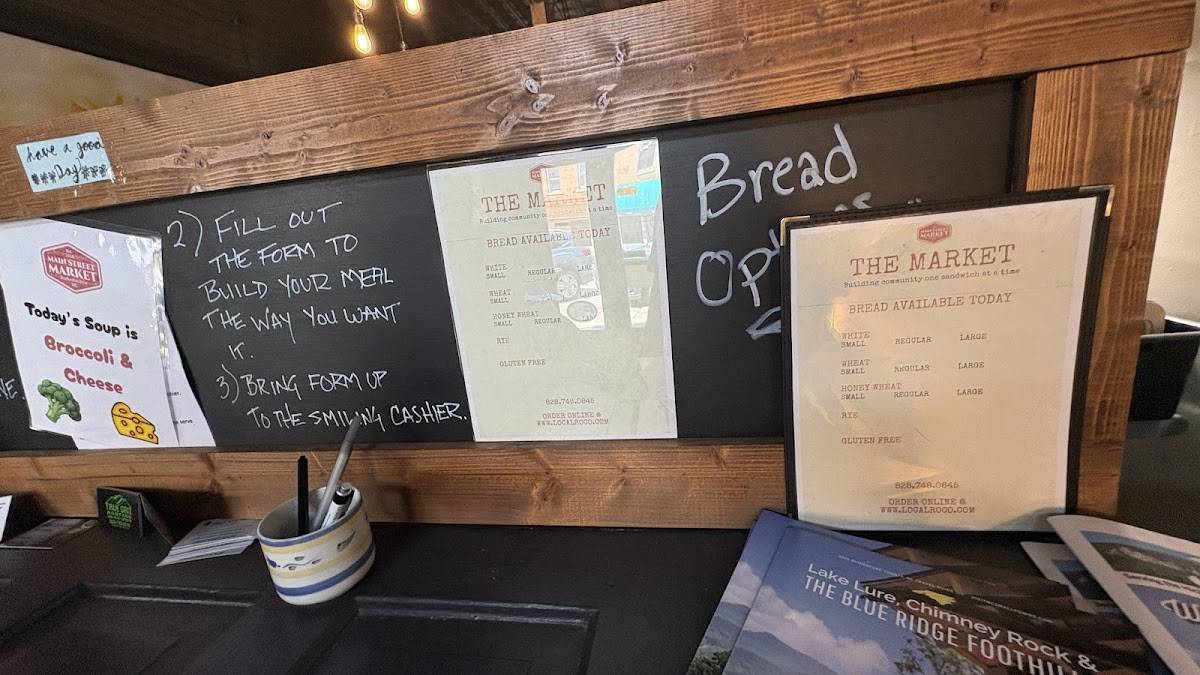 have a good
Day
MAIN STREET
MARKET
Today's Soup is
Broccoli &
Cheese
2) FILL OUT
THE FORM TO
BUILD YOUR MEAL
THE WAY YOU WANT
IT.
3) BRING FORM UP
TO THE SMILING CASHIER.
THE MARKET
Building community one sandwich at a time
BREAD AVAILABLE TODAY
WHITE
SMALL REGULAR LARGE
WHEAT
SMALL REGULAR LARGE
HONEY WHEAT
SMALL REGULAR
RYE
GLUTEN FREE
828.748.0845
ORDER ONLINE @
WWW.LOCALROCO.COM
Bread
THE MARKET
Building community one sandwich at a time
BREAD AVAILABLE TODAY
WHITE
SMALL REGULAR LARGE
WHEAT
SMALL REGULAR LARGE
HONEY WHEAT
SMALL REGULAR LARGE
RYE
GLUTEN FREE
828.748.0845
ORDER ONLINE @
WWW.LOCALROCO.COM
Lake Lure, Chimney Rock &
THE BLUE RIDGE FOOTHI